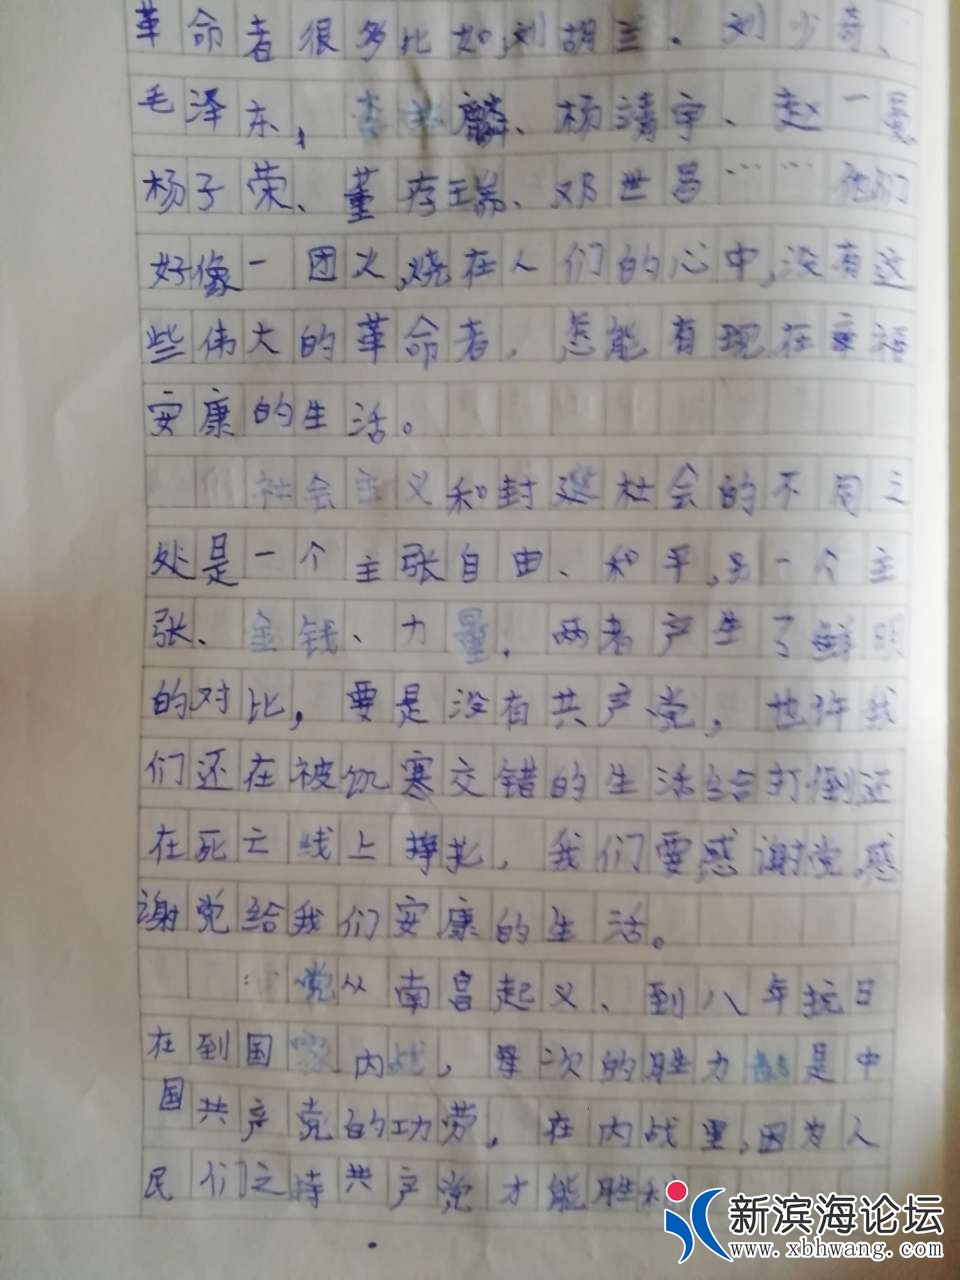 革命者很多比如,刘胡兰、刘少奇、
毛泽东,李兆麟、杨清宇、赵一曼
杨子荣、董存瑞、邓世昌……他们
好像一团火,烧在人们的心中,没有这
些伟大的革命者,怎能有现在幸福
安康的生活。
社会主义和封建社会的不同之
处是一个主张自由、和平,另一个主
张、金钱、力量,两者产生了鲜明
的对比,要是没有共产党,也许我
们还在被饥寒交错的生活给打倒还
在死亡线上挣扎,我们要感谢党,感
谢党给我们安康的生活。
党从南昌起义、到八年抗日
在到国内战,每次的胜力都是中
国共产党的功劳,在内战里,因为人
民们之持共产党才能胜利
新滨海论坛
www.xbhwang.com